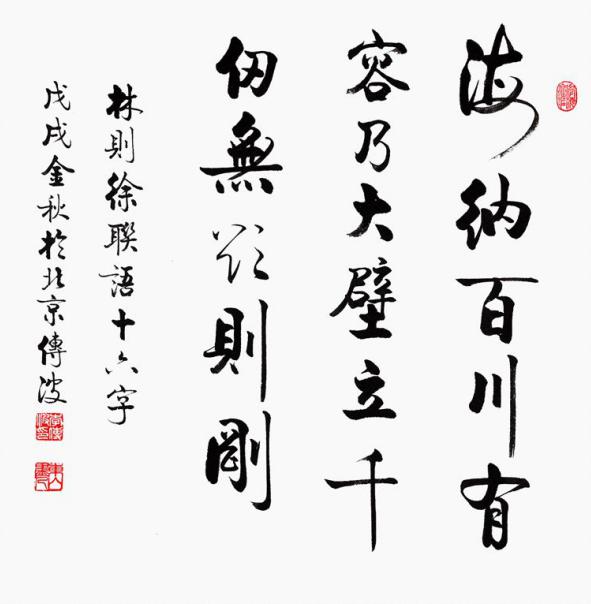 海納百川有
容乃大壁立千
仞無欲則剛
林則徐聯語十六字
戊戌金秋於北京傳波